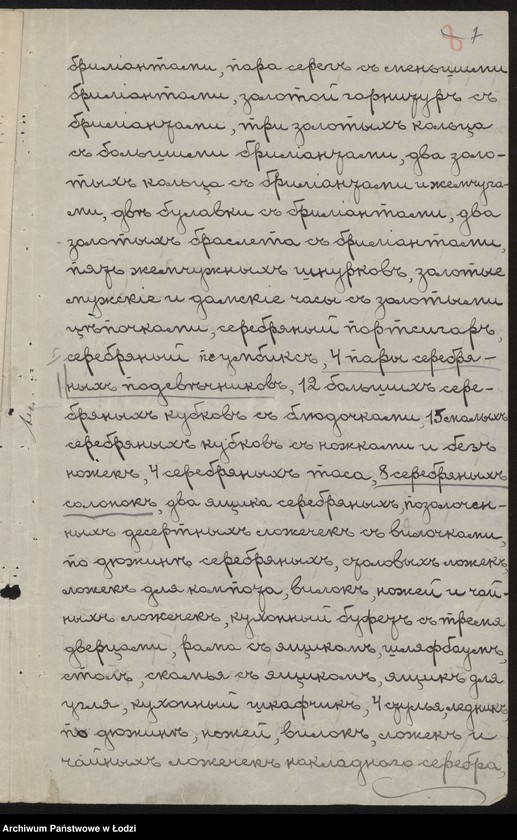 8 7
брилiантами, пара серегъ съ меньшими
брилiантами, золотой гарнитуръ съ
брилiантами, три золотыхъ кольца
съ большими брилiантами, два золо-
тыхъ кольца съ брилiантами и жемчуга-
ми, двѣ булавки съ брилiантами, два
золотыхъ браслета съ брилiантами,
пять жемчужныхъ шнурковъ, золотые
мужскiе и дамскiе часы съ золотыми
цѣпочками, серебряный портсигаръ,
серебряный 4 пары серебря-
ныхъ подсвѣчниковъ, 12 большихъ сере-
бряныхъ кубковъ съ блюдочками, 15 малыхъ
серебряныхъ кубковъ съ ножками и безъ
ножекъ, 4 серебряныхъ таса, 8 серебряныхъ
солонокъ, два ящика серебряныхъ, позолочен-
ныхъ десертныхъ ложечекъ съ вилочками,
по дюжинѣ серебряныхъ, столовыхъ ложекъ,
ложекъ для компота, вилокъ, ножей и чай-
ныхъ ложечекъ, кухонный буфетъ съ тремя
дверцами, рама съ ящикомъ, шляфбаумъ,
столъ, скамья съ ящикомъ, ящикъ для
угля, кухонный шкафчикъ, 4 стулья, ледникъ,
по дюжинѣ, ножей, вилокъ, ложекъ и
чайныхъ ложечекъ накладного серебра,
Archiwum Państwowe w Łodzi